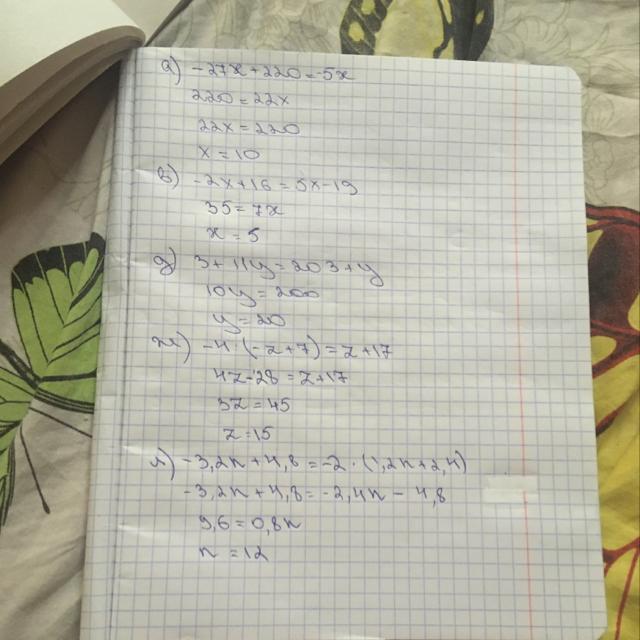 а) -27x+220=-5x
220=22x
22x=220
x=10
в) -2x+16=5x-19
35=7x
x=5
д) 3+11y=203+y
10y=200
y=20
ж) -4·(-z+7)=z+17
4z-28=z+17
3z=45
z=15
л) -3,2n+4,8=-2·(1,2n+2,4)
-3,2n+4,8=-2,4n-4,8
9,6=0,8n
n=12